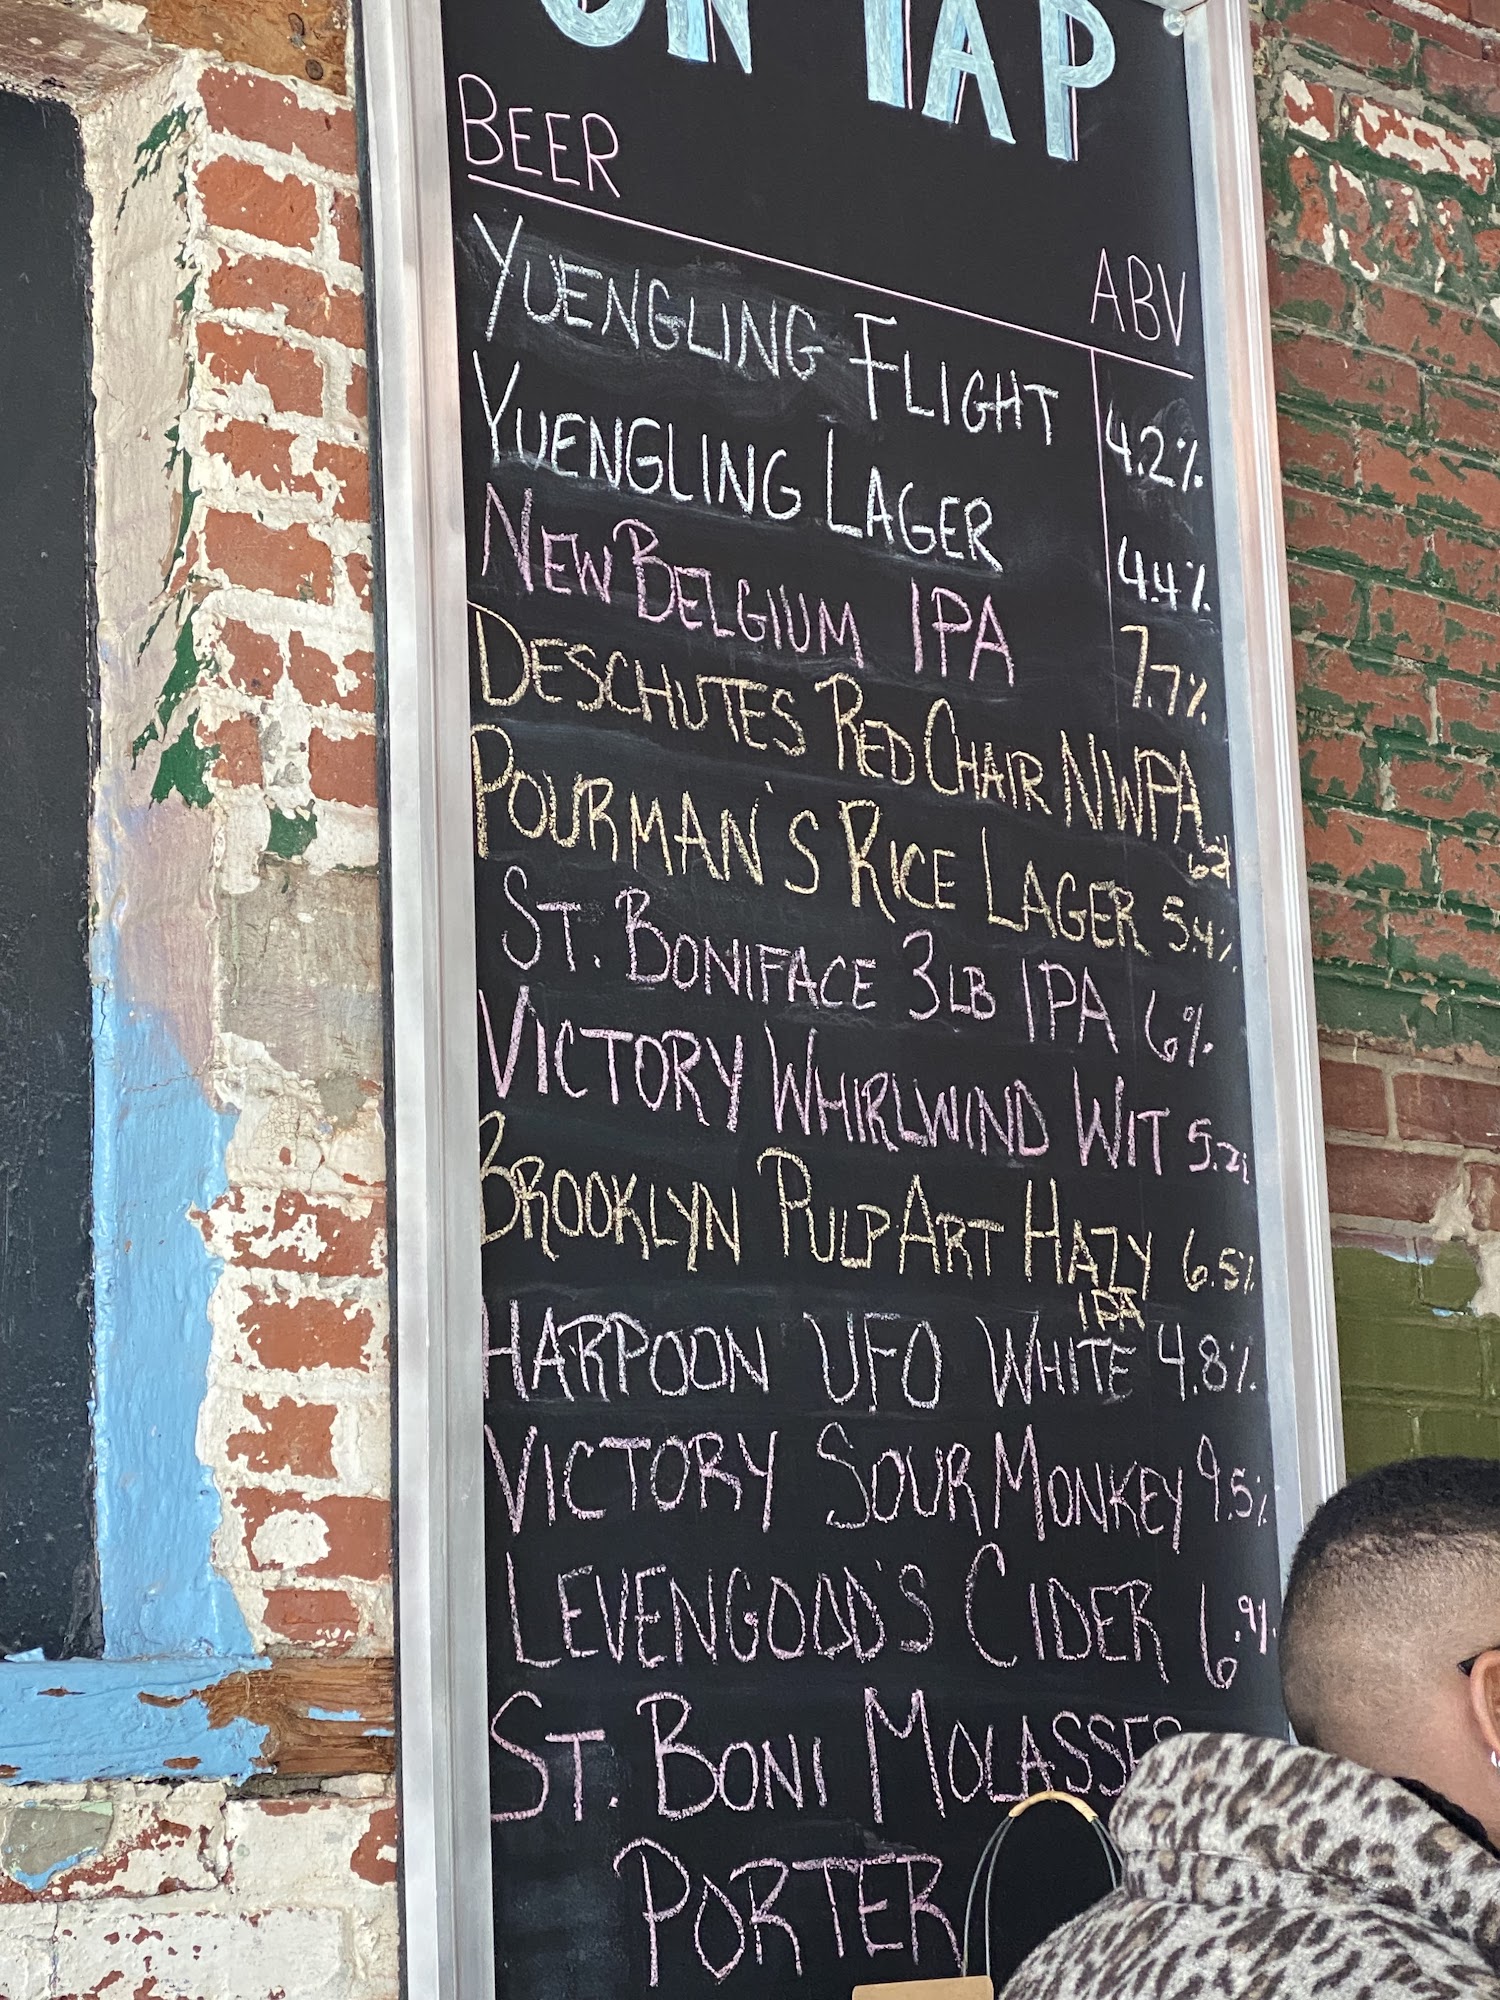 ON TAP
BEER ABV
YUENGLING FLIGHT 4.2%
YUENGLING LAGER 4.4%
NEW BELGIUM IPA 7.7%
DESCHUTES RED CHAIR NWPA
POURMAN'S RICE LAGER 5.4%
ST. BONIFACE 3LB IPA 6%
VICTORY WHIRLWIND WIT 5.2%
BROOKLYN PULP ART HAZY 6.5%
IPA
HARPOON UFO WHITE 4.8%
VICTORY SOUR MONKEY 9.5%
LEVENGOOD'S CIDER 6.9%
ST. BONI MOLASSES
PORTER